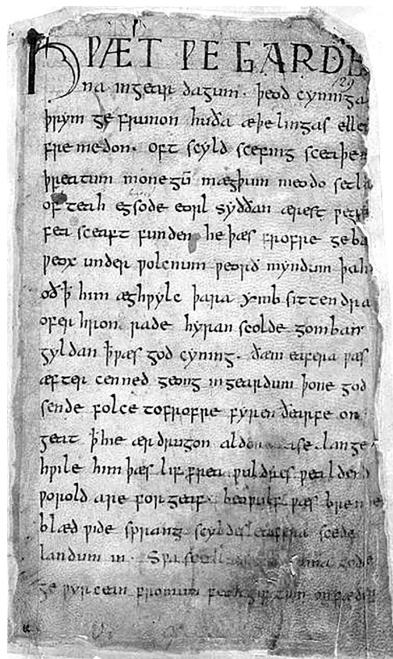 HǷÆT ǷE GARDE
na ingear dagum. þeod cyninga
þrym ge frunon huða æþelingas elle
fremedon. oft scyld scefing sceaþe
þreatum monegū mægþum meodo setla
of teah egsode eorl syððan ærest ƿear
fea sceaft funden he þæs frofre geba
ƿeox under ƿolcnum ƿeorð myndum þah
oð ꝥ him æghƿylc þara ymb sittendra
ofer hron rade hyran scolde gomban
gyldan ꝥ ƿæs god cyning. ðæm eafera ƿæs
æfter cenned geong in geardum þone god
sende folce tofrofre fyren ðearfe on
geat ꝥ hie ær drugon aldor ase lange
hƿile him þæs lif frea ƿuldres ƿealdend
ƿorold are for geaf. beoƿulf ƿæs breme
blæd ƿide sprang scyldes eafera scede
landum in. Sƿa sceal ma gode
ge ƿyrcean fromum feoh giftum on fæder